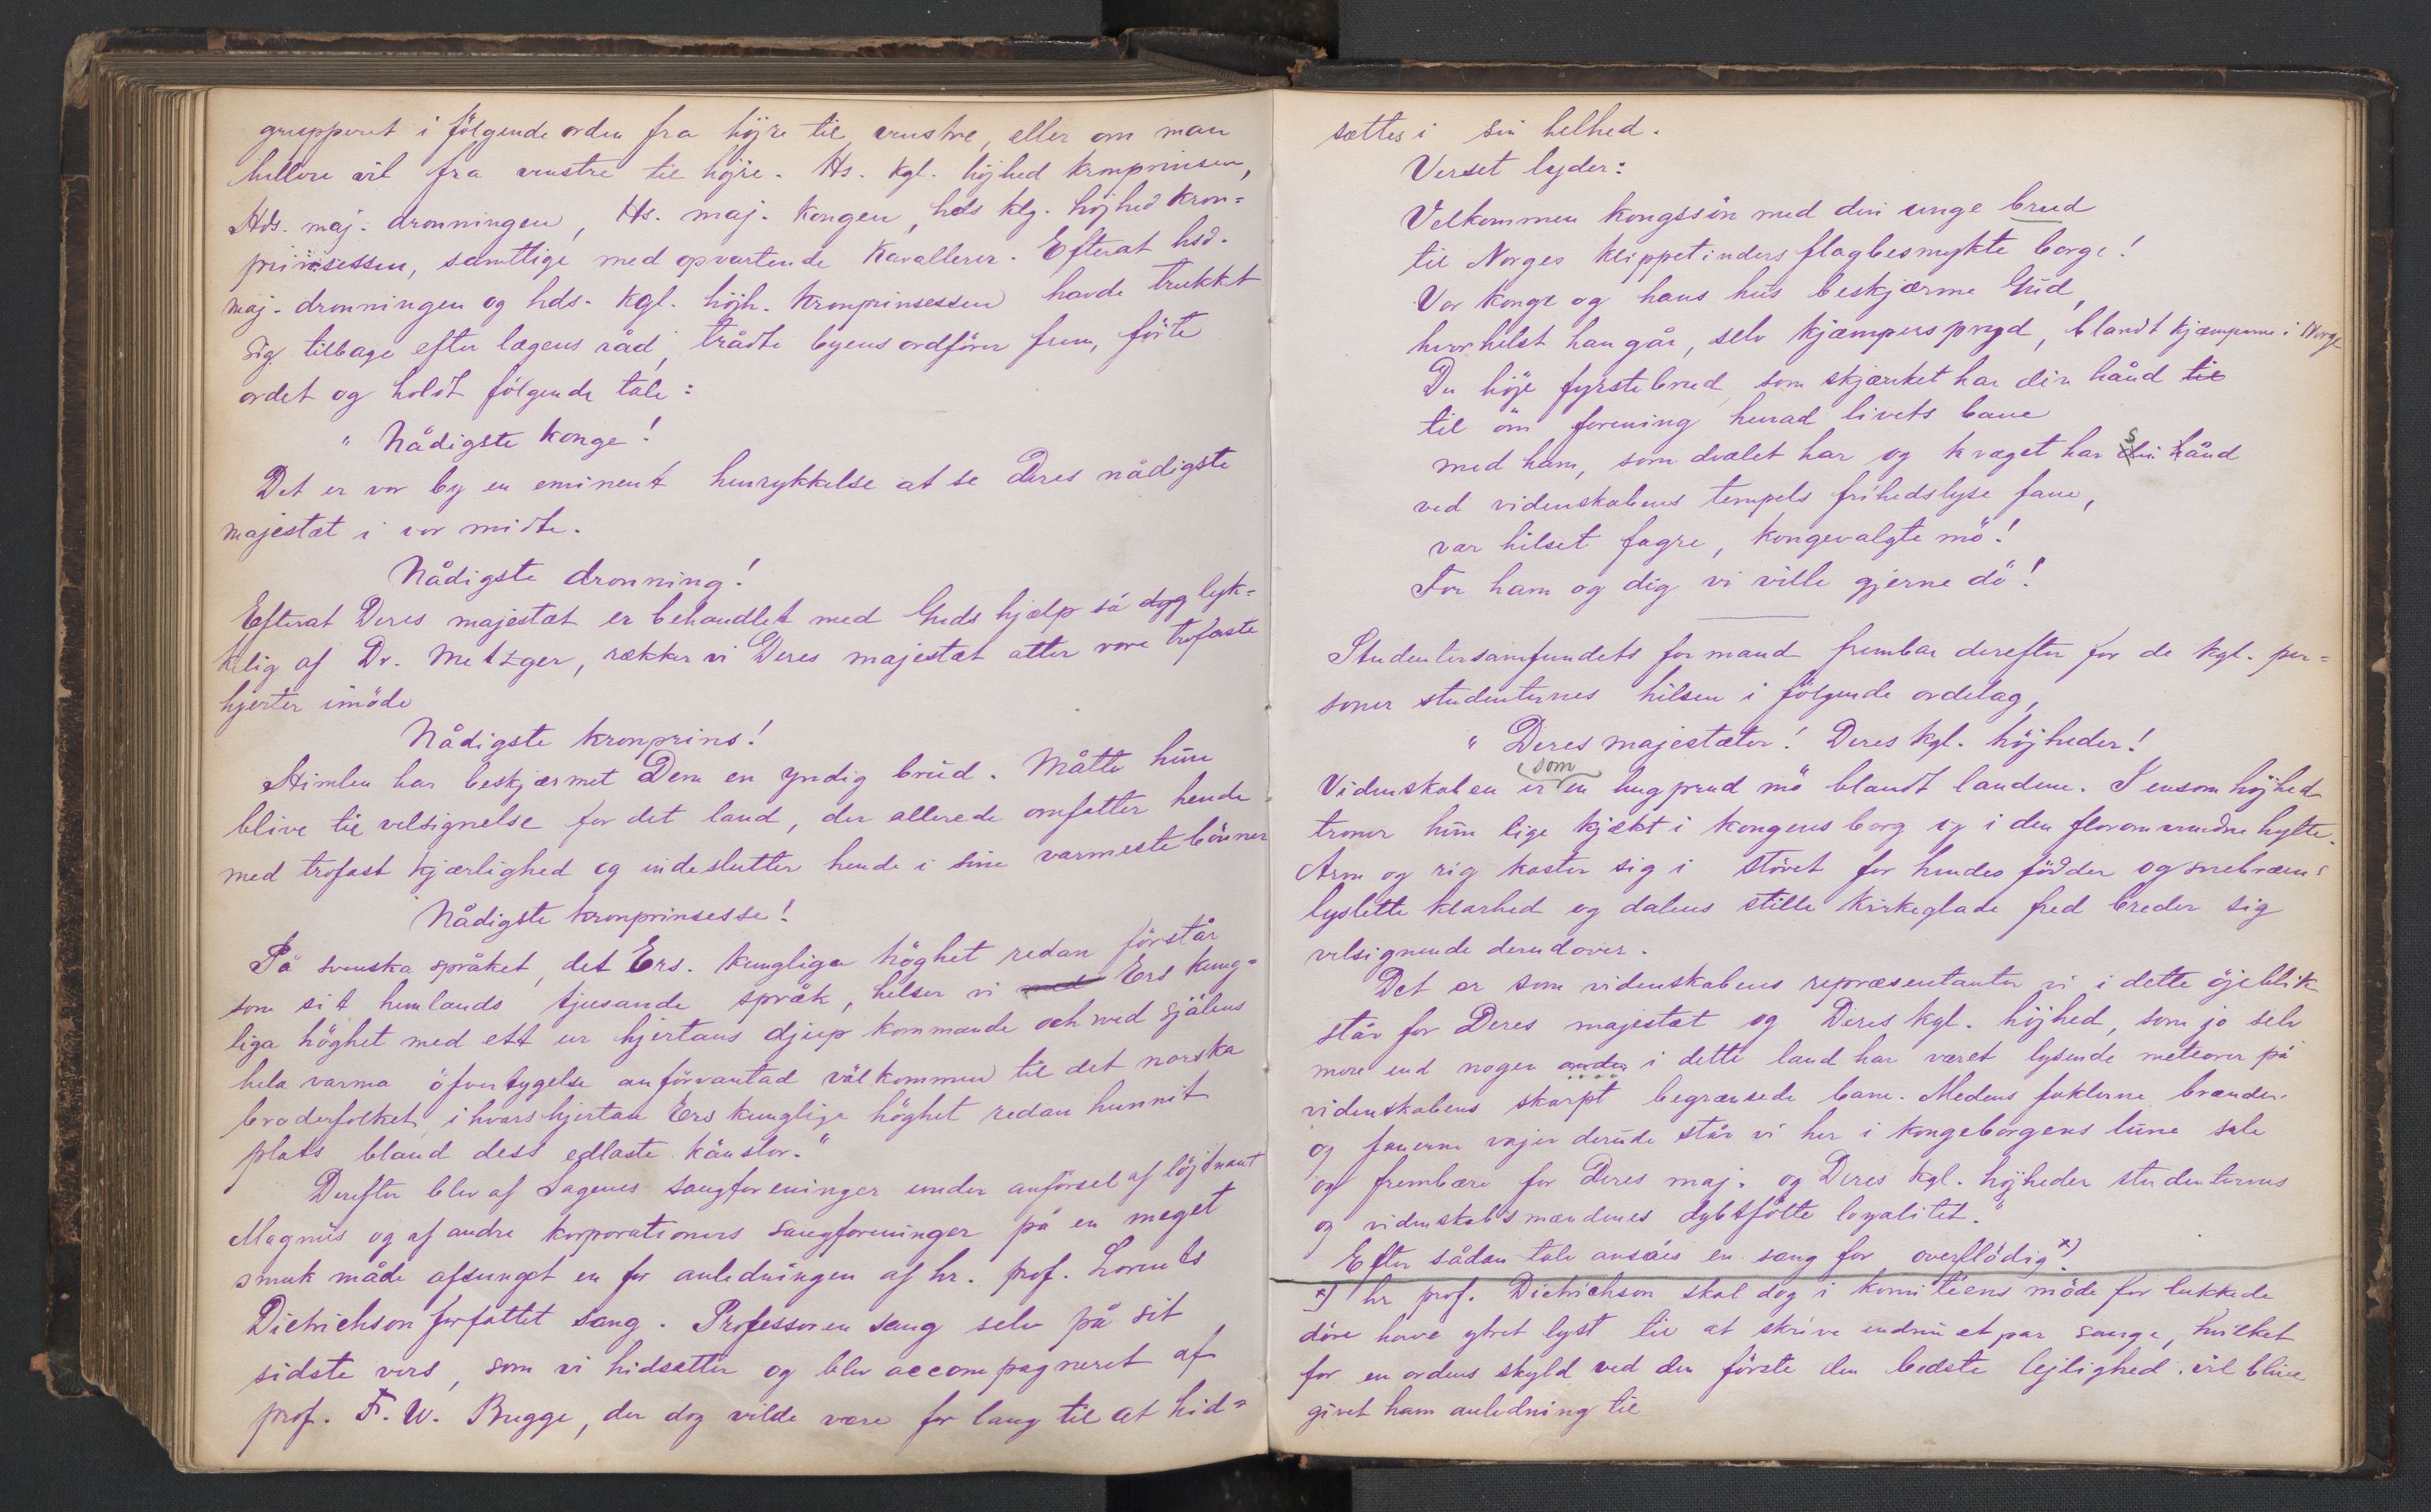 grupperet i følgende orden fra höjre til venstre, eller om man
hellere vil fra venstre til höjre. Hs. kgl. höjhed kronprinsen,
Hds. maj. dronningen, Hs. maj. kongen, hds klg. höjhed kron=
prinsessen, samtlige med opvartende kavallerer. Efterat hsd.
maj. dronningen og hds. kgl. höjh. kronprinsessen havde trukket
sig tilbage efter lægens råd, trådte byens ordförer frem, förte
ordet og holdt fölgende tale:
" Nådigste konge!
Det er vor by en eminent henrykkelse at se Deres nådigste
majestæt i vor midte.
Nådigste dronning!
Efterat Deres majestæt er behandlet med Guds hjælp så dyg lyk=
kelig af Dr. Metzger, rækker vi Deres majestæt atter vore trofaste
hjerter imöde
Nådigste kronprins!
Himlen har beskjærmet Dem en yndig brud. Måtte hun
blive til velsignelse for det land, der allerede omfatter hende
med trofast kjærlighed og indeslutter hende i sine varmeste bönner
Nådigste kronprinsesse!
På svenska språket, det Ers. kungliga höghet redan förstår
som sit hemlands tjusande språk, helser vi med Ers kung=
liga höghet med ett ur hjertans djup kommande och med själens
hela varma öfvertygelse anförvantad välkommen til det norska
broderfolket, i hvars hjertan Ers kungliga höghet redan hunnit
plats bland dess edlaste känslor."
Derefter blev af Sagenes sangforeninger under anförsel af löjtnant
Magnus og af andre korporationers sangforeninger på en meget
smuk måde afsunget en for anledningen af hr. prof. Lorentz
Dietrichson forfattet sang. Professoren sang selv på sit
sidste vers, som vi hidsætter og blev accompagneret af
prof. F. W. Bugge, der dog vilde være for lang til at hid=
sættes i sin helhed.
Verset lyder:
Velkommen kongssön med din unge brud
til Norges klippetinders flagbesmykte borge!
Vor konge og hans hus beskjærme Gud,
hvorhelst han går, selv kjæmpers pryd, blandt kjæmperne i Norge
Du höje fyrstebrud, som skjænket har din hånd til
til öm forening henad livets bane
med ham, som dvælet har og kvæget har din s hånd
ved videnskabens tempels frihedslyse fane,
vær hilset fagre, kongevalgte mö!
For ham og dig vi ville gjerne dö!
Studentersamfundets formand frembar derefter for de kgl. per=
soner studenternes hilsen i fölgende ordelag,
" Deres majestæter! Deres kgl. höjheder!
som
Videnskaben er en hugprud mö blandt landene. I ensom höjhed
troner hun lige kjækt i kongens borg og i den floromvundne hytte.
Arm og rig kaster sig i stövet for hendes födder og snebræens
lyslette klarhed og dalens stille kirkeglade fred breder sig
velsignende derudover.
Det er som videnskabens repræsentanter vi i dette öjeblik
står for Deres majestæt og Deres kgl. höjhed, som jo selv
mere end nogen anden i dette land har været lysende meteorer på
videnskabens skarpt begrænsede bane. Medens faklerne brænder
og fanerne vajer derude står vi her i kongeborgens lune sale
og frembære for Deres maj. og Deres kgl. höjheder studenternes
og videnskabsmændenes dybtfölte loyalitet."
Efter sådan tale ansåes en sang for overflödig.*)
*) hr prof. Dietrichson skal dog i komitéens möde for lukkede
döre have ytret lyst til at skrive endnu et par sange, hvilket
for en ordens skyld ved den förste den bedste lejlighed vil blive
givet ham anledning til